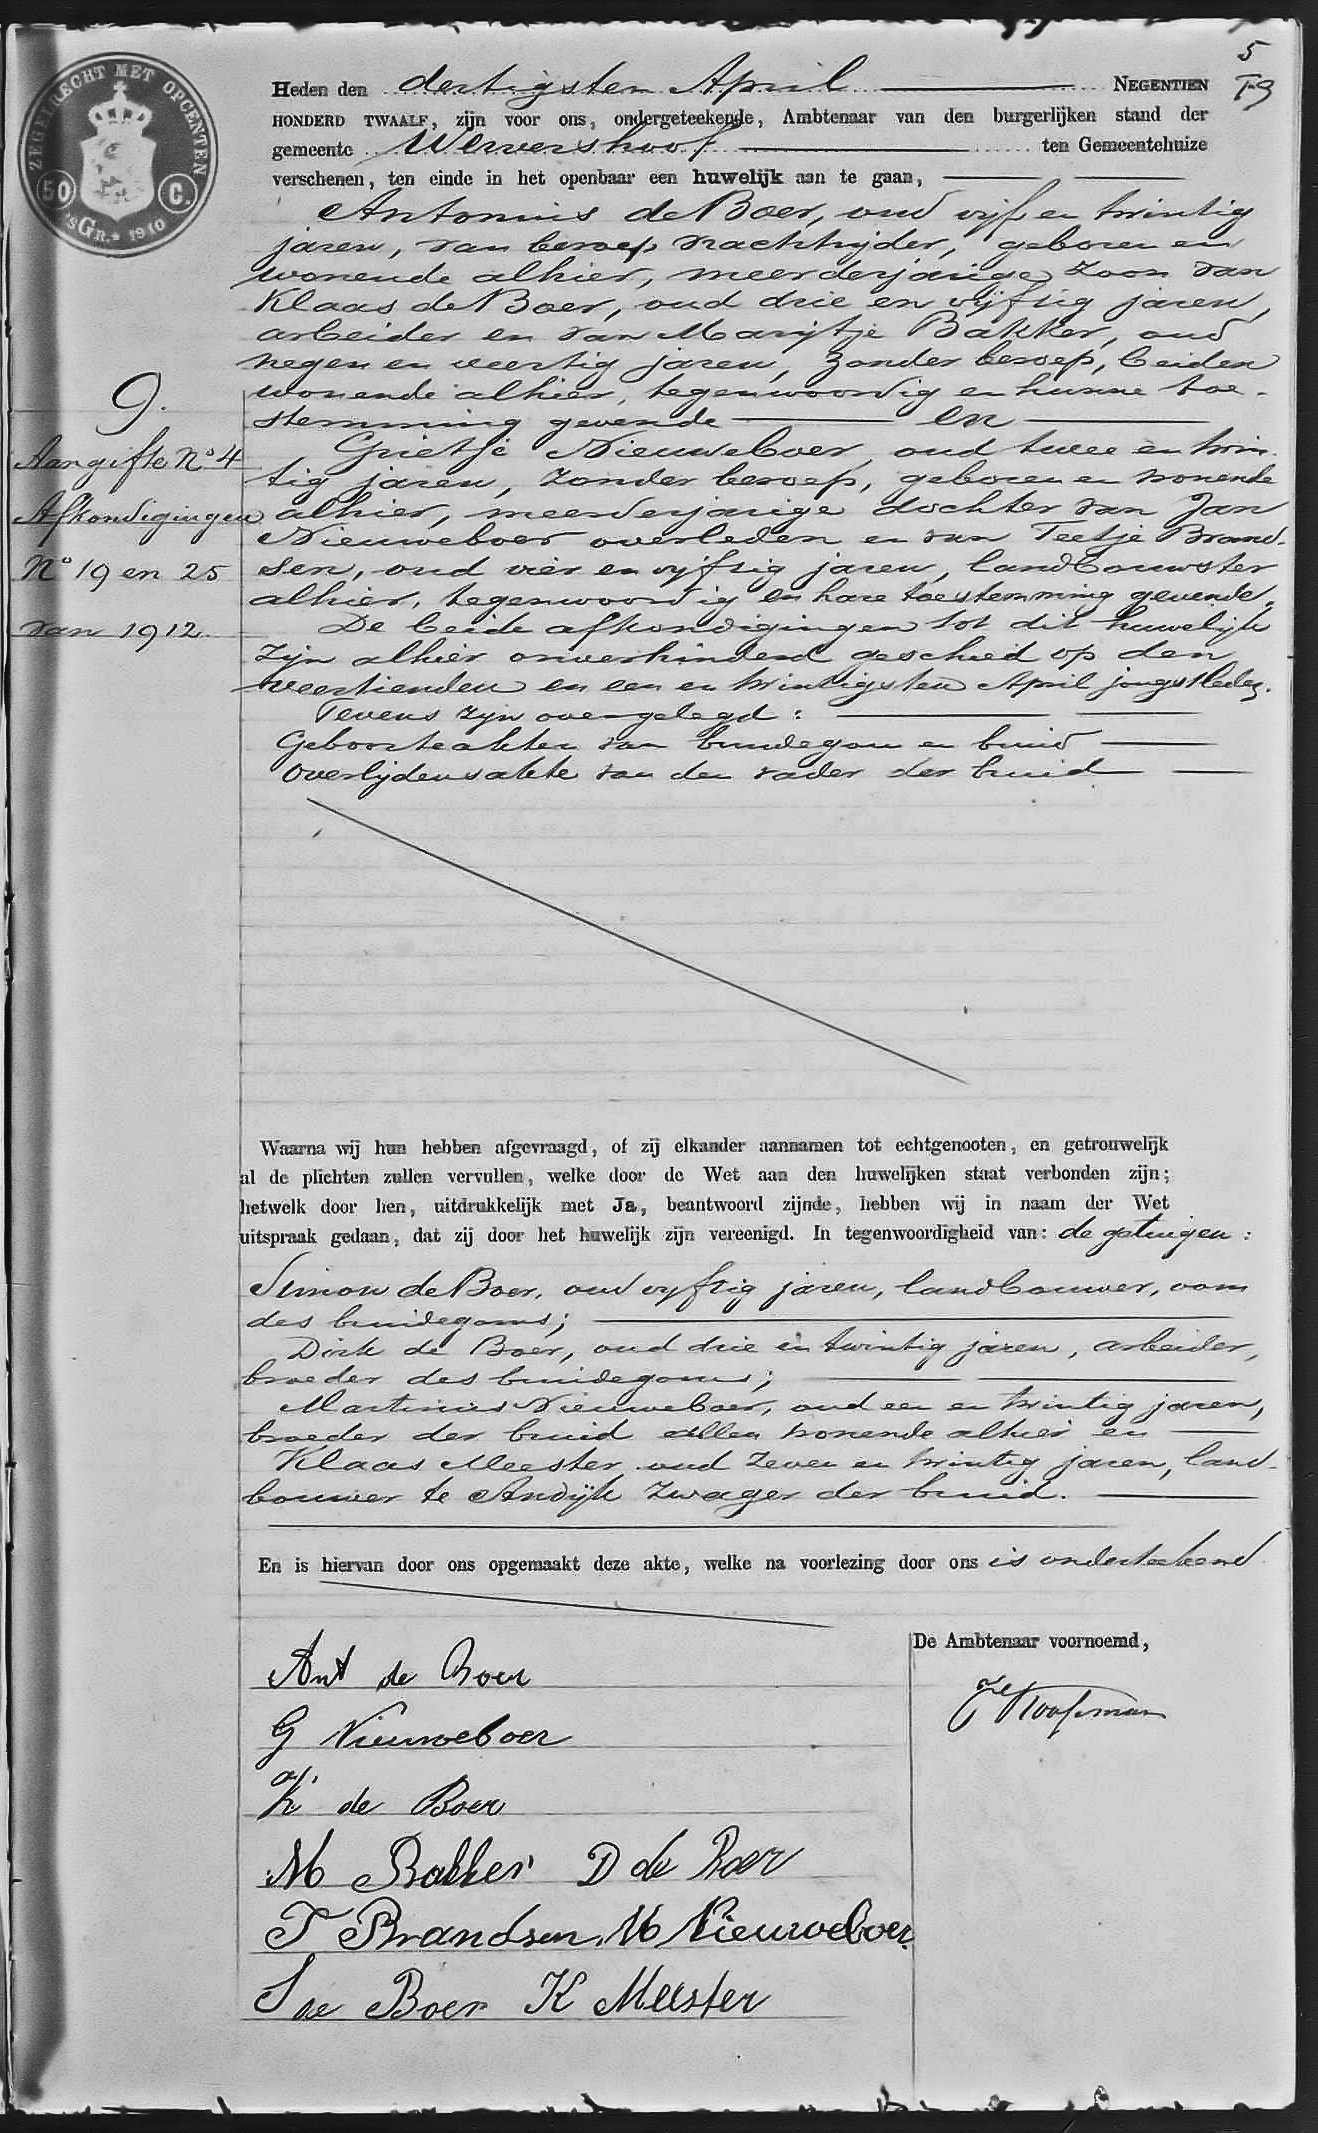 5
T9
ZEGELRECHT MET OPCENTEN
50 C.
'sGR. 1910
Heden den dertigsten April NEGENTIEN
HONDERD TWAALF, zijn voor ons, ondergeteekende, Ambtenaar van den burgerlijken stand der
gemeente Wervershoof ten Gemeentehuize
verschenen, ten einde in het openbaar een huwelijk aan te gaan,
Antonius de Boer, oud vijf en twintig
jaren, van beroep vrachtrijder, geboren en
wonende alhier, meerderjarige zoon van
Klaas de Boer, oud drie en vijftig jaren,
arbeider en van Marijtje Bakker, oud
negen en veertig jaren, zonder beroep, beiden
wonende alhier, tegenwoordig en hunne toe-
stemming gevende en
Grietje Nieuweboer, oud twee en twin-
tig jaren, zonder beroep, geboren en wonende
alhier, meerderjarige dochter van Jan
Nieuweboer overleden en van Teetje Brand-
sen, oud vier en vijftig jaren, landbouwster
alhier, tegenwoordig en hare toestemming gevende.
De beide afkondigingen tot dit huwelijk
zijn alhier onverhinderd geschied op den
veertienden en een en twintigsten April jongstleden.
Tevens zijn overgelegd:
Geboorteakten van bruidegom en bruid
Overlijdensakte van den vader der bruid
9.
Aangifte No 4
Afkondigingen
No 19 en 25
van 1912.
Waarna wij hun hebben afgevraagd, of zij elkander aannamen tot echtgenooten, en getrouwelijk
al de plichten zullen vervullen, welke door de Wet aan den huwelijken staat verbonden zijn;
hetwelk door hen, uitdrukkelijk met Ja, beantwoord zijnde, hebben wij in naam der Wet
uitspraak gedaan, dat zij door het huwelijk zijn vereenigd. In tegenwoordigheid van: de getuigen:
Simon de Boer, oud vyftig jaren, landbouwer, oom
des bruidegoms;
Dirk de Boer, oud drie en twintig jaren, arbeider,
broeder des bruidegoms;
Martinus Nieuweboer, oud een en twintig jaren,
broeder der bruid allen wonende alhier en
Klaas Meester, oud zeven en twintig jaren, land-
bouwer te Andijk zwager der bruid.
En is hiervan door ons opgemaakt deze akte, welke na voorlezing door ons is onderteekend
De Ambtenaar voornoemd,
Koopman
Ant de Boer
G Nieuweboer
K de Boer
M Bakker D de Boer
T Brandsen. M Nieuweboer
S de Boer K Meester